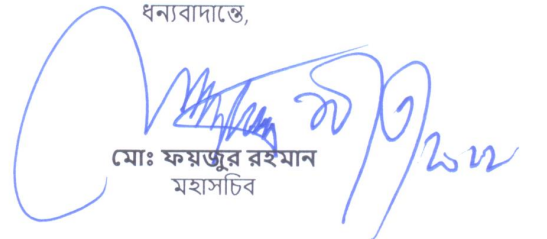 ধন্যবাদান্তে,
মোঃ ফয়জুর রহমান
মহাসচিব